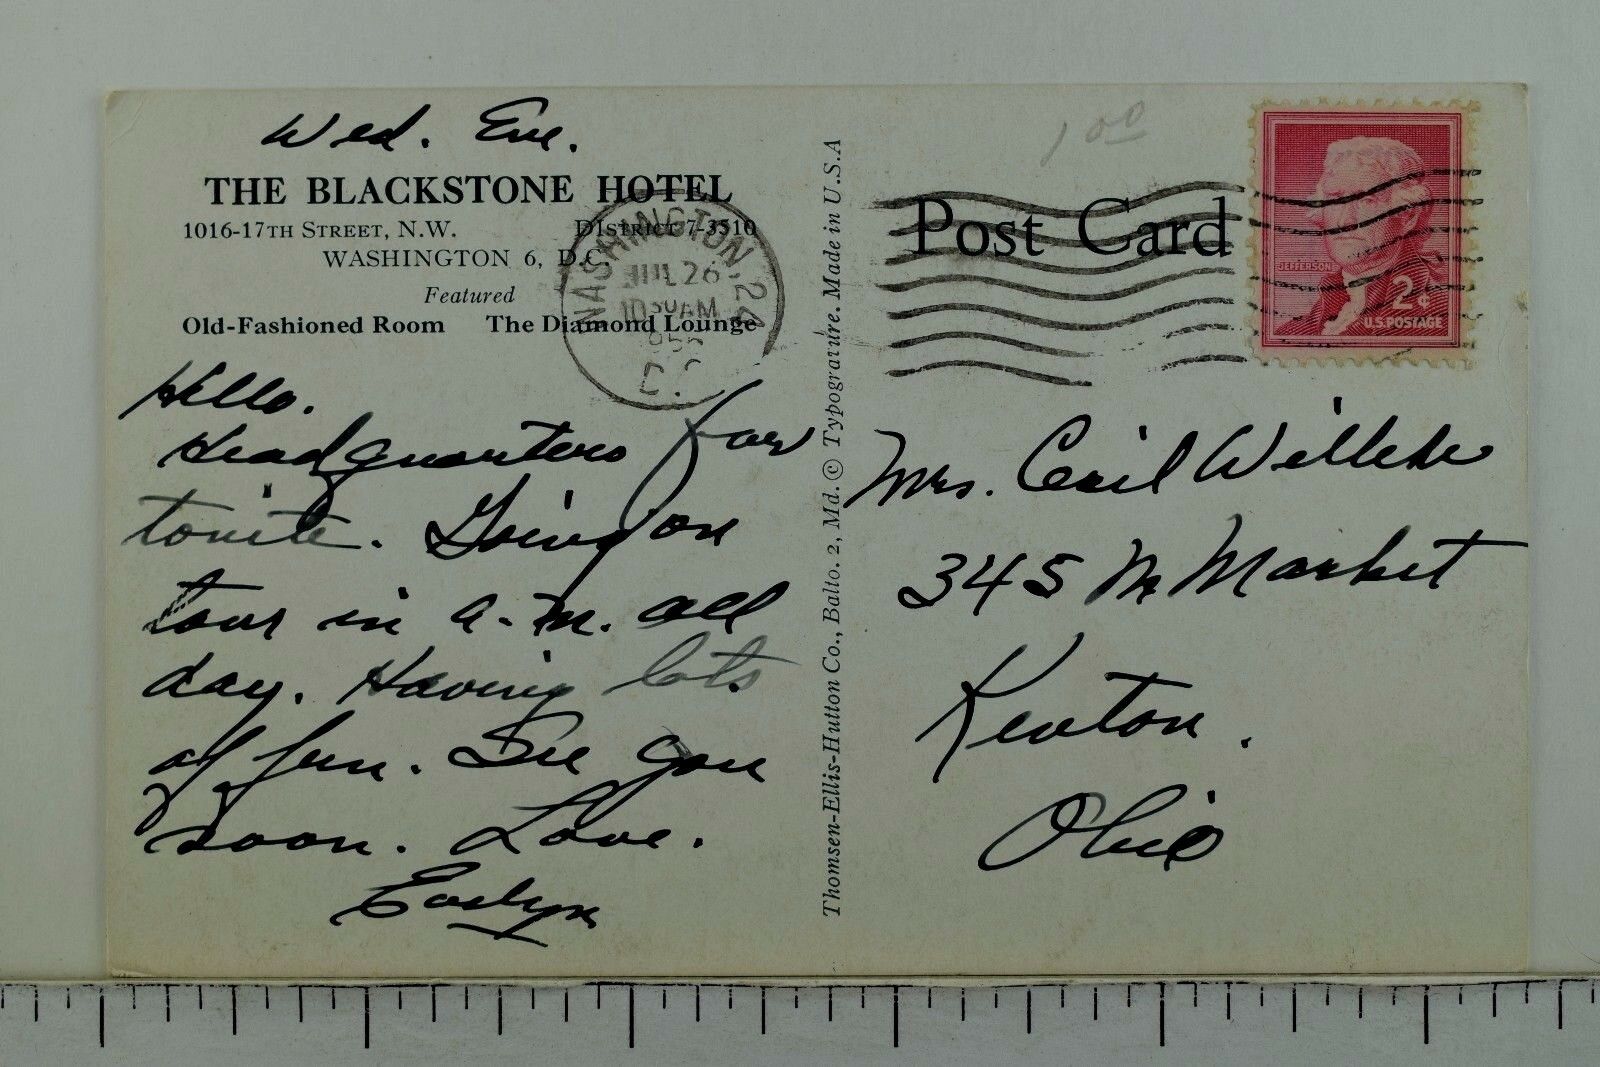 Wed. Eve.
THE BLACKSTONE HOTEL
1016-17TH STREET, N.W. DISTRICT 7-3510
WASHINGTON 6, D.C.
Featured
Old-Fashioned Room The Diamond Lounge
WASHINGTON, 24
JUL 26
10 30 AM
D.C.
Hello.
Headquarters for
tonite. Going on
tour in a.m. all
day. Having lots
of fun. See you
soon. Love.
Evelyn
Thomsen-Ellis-Hutton Co., Balto. 2, Md. © Typogravure. Made in U.S.A
1 00
Post Card
JEFFERSON
2¢
U.S. POSTAGE
Mrs. Cecil
345 N Market
Kenton.
Ohio